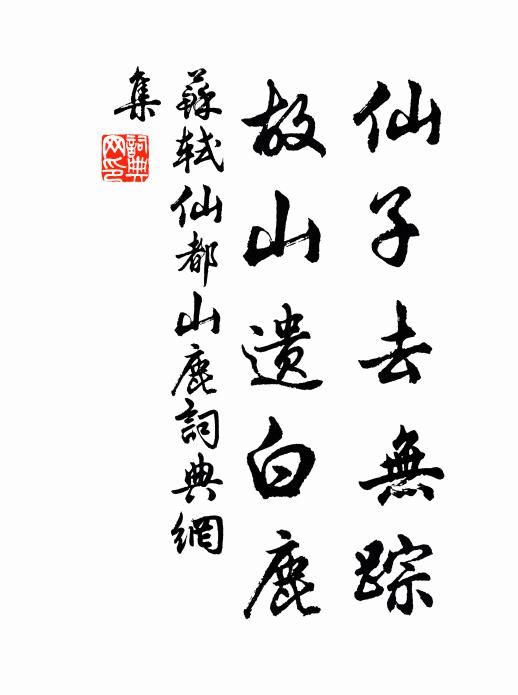 仙子去無踪
故山遺白鹿
蘇軾仙都山鹿詞典網
集
詞典
網印